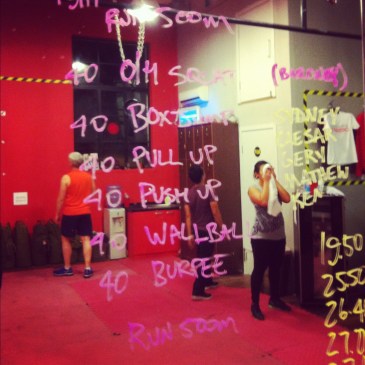 RUN 500m
40 O/H SQUAT
40 BOX JUMP
40 PULL UP
40 PUSH UP
40 WALLBAL
40 BURPEE
RUN 500m
SYDNEY
CAESAR
GERV
MATHEW
KEN
19:50
25:50
26.4
27.0